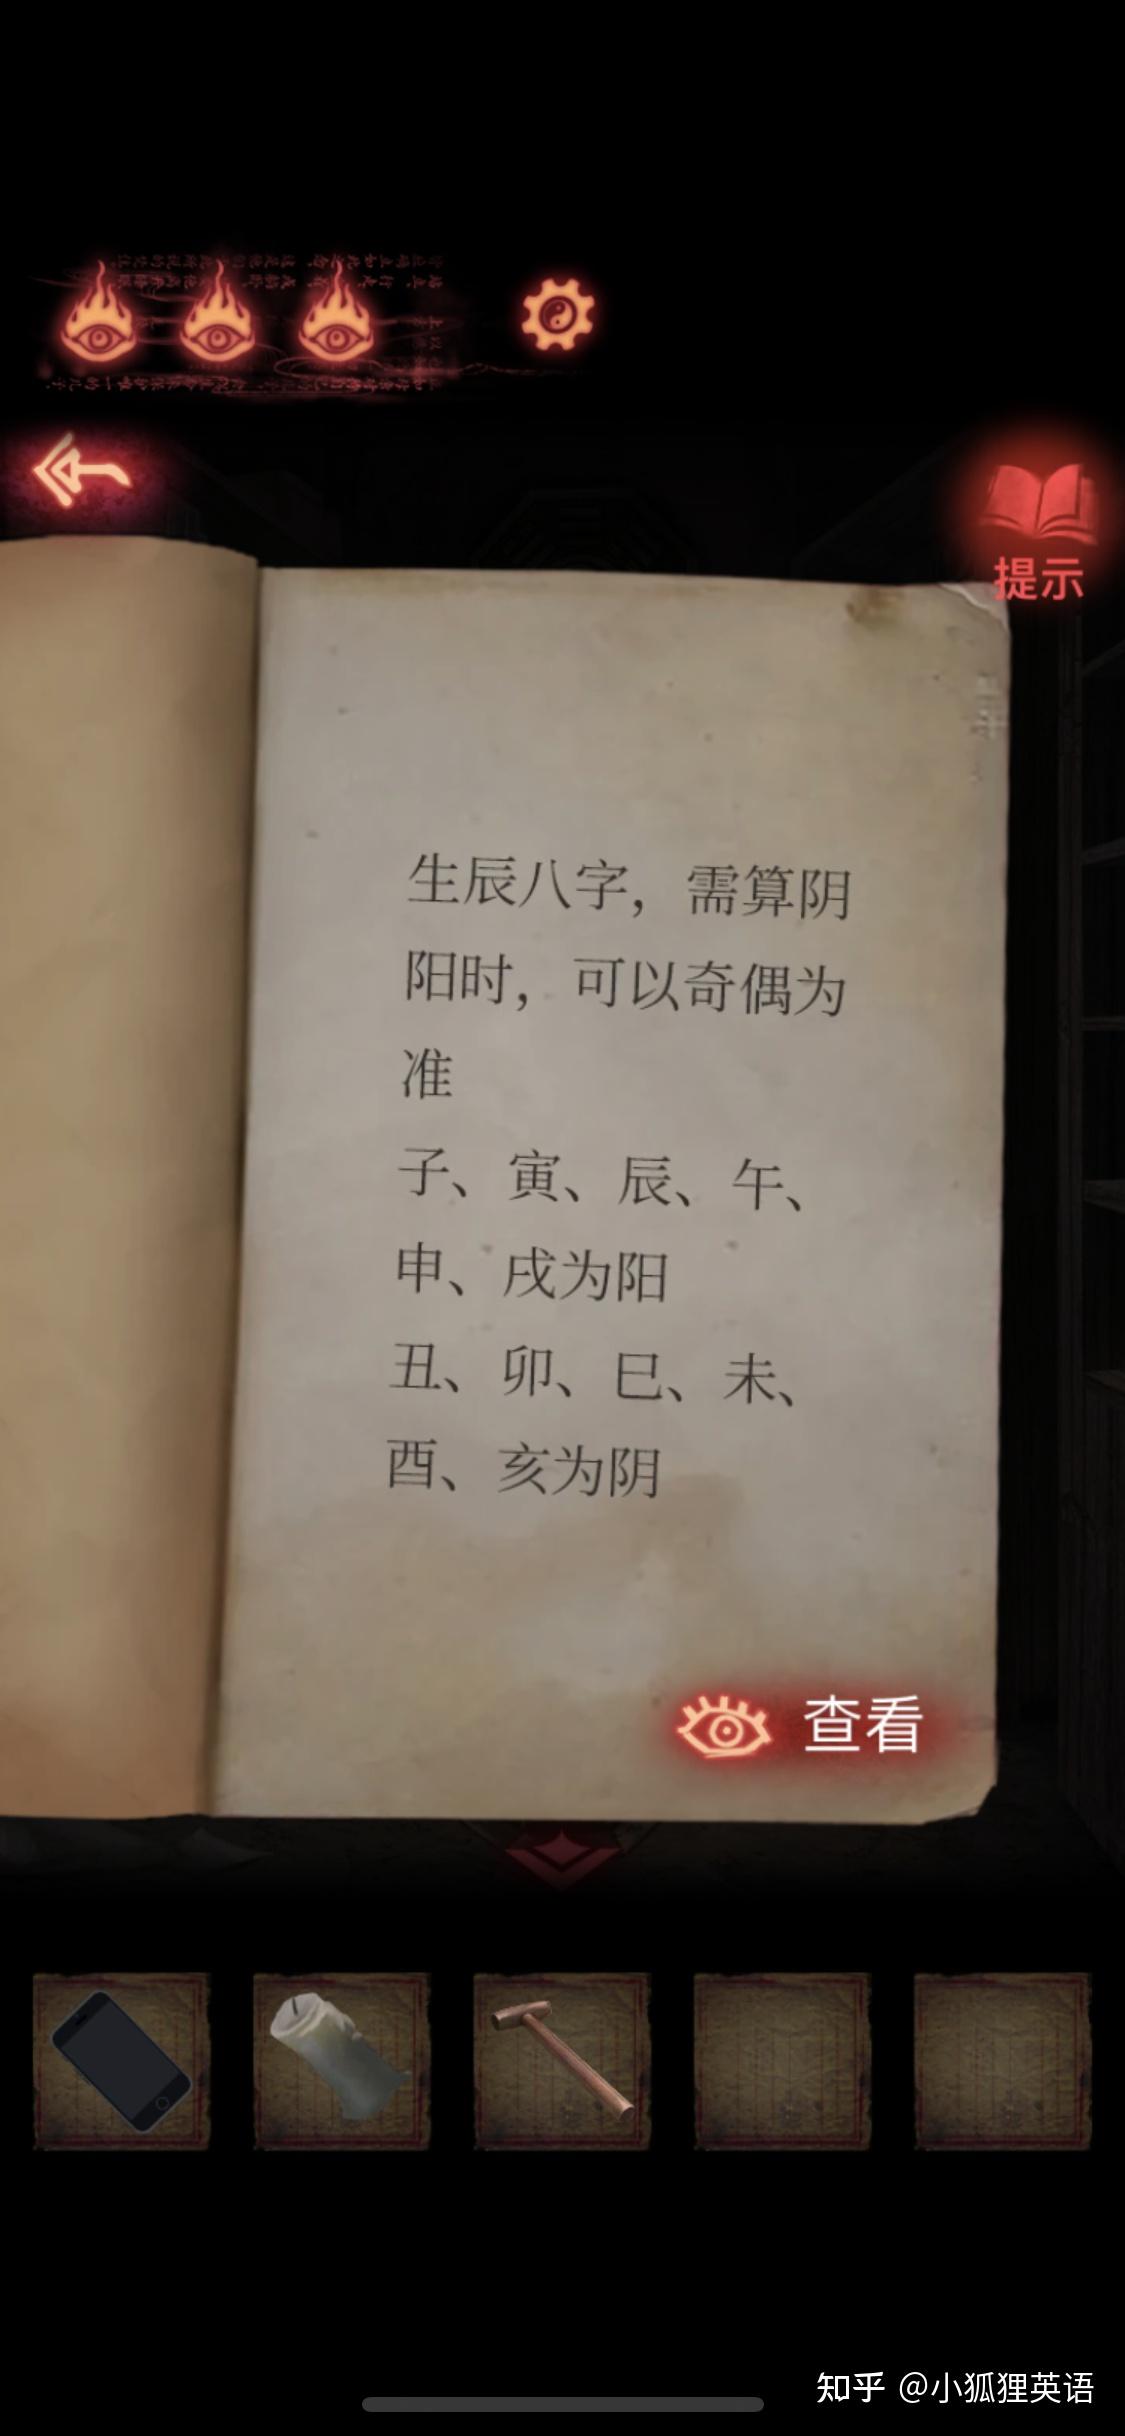 提示
生辰八字，需算阴
阳时，可以奇偶为
准
子、寅、辰、午、
申、戌为阳
丑、卯、巳、未、
酉、亥为阴
查看
知乎 @小狐狸英语